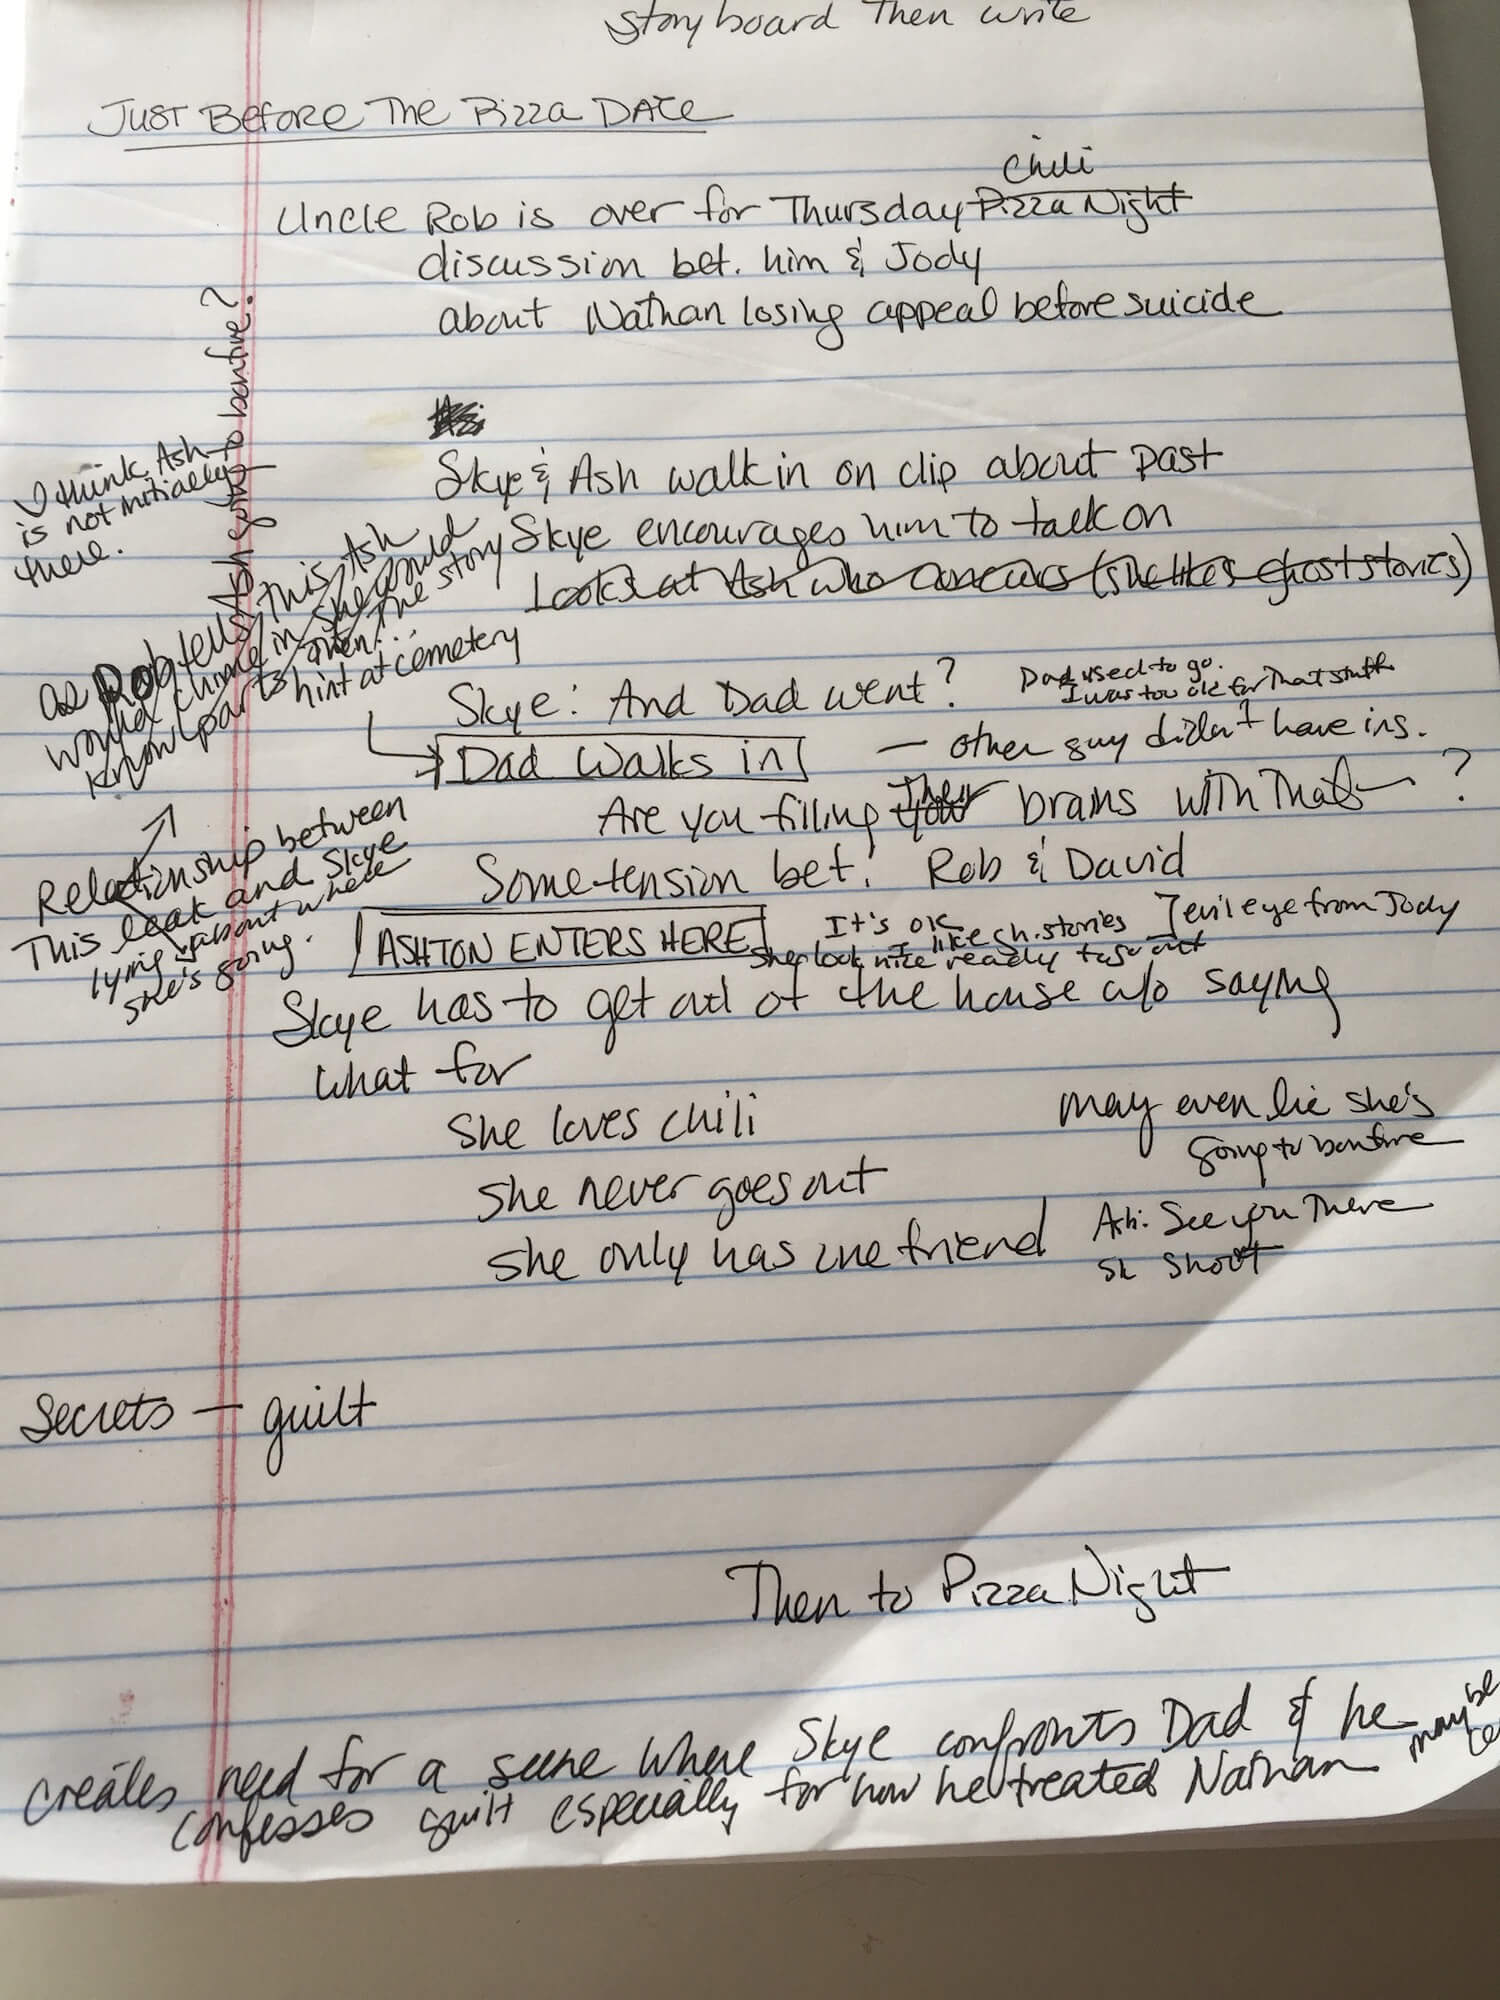 storyboard Then write
Just Before The Pizza Date
chili
Uncle Rob is over for Thursday Pizza Night
discussion bet. him & Jody
about Nathan losing appeal before suicide
Skye & Ash walk in on clip about past
Skye encourages him to talk on
Looks at Ash who concurs (she likes ghost stories)
I think Ash
is not initially
there.
Ash going to bonfire?
as Rob tells this Ash
would chime in she would
know parts then the story
hint at cemetery
Skye: And Dad went?
Dad used to go.
I was too old for that stuff
Dad Walks in
— other guy didn't have ins.
Are you filling their brains with that ?
Some tension bet. Rob & David
Relationship between
This leak and Skye
lying about where
she's going.
ASHTON ENTERS HERE
It's ok I like gh. stories
evil eye from Jody
she look nice ready to go out
Skye has to get out of the house w/o saying
what for
she loves chili
she never goes out
she only has one friend
may even lie she's
going to bonfire
Ash: See you There
Sk Shoot
Secrets — guilt
Then to Pizza Night
creates need for a scene where Skye confronts Dad & he
confesses guilt especially for how he treated Nathan
maybe